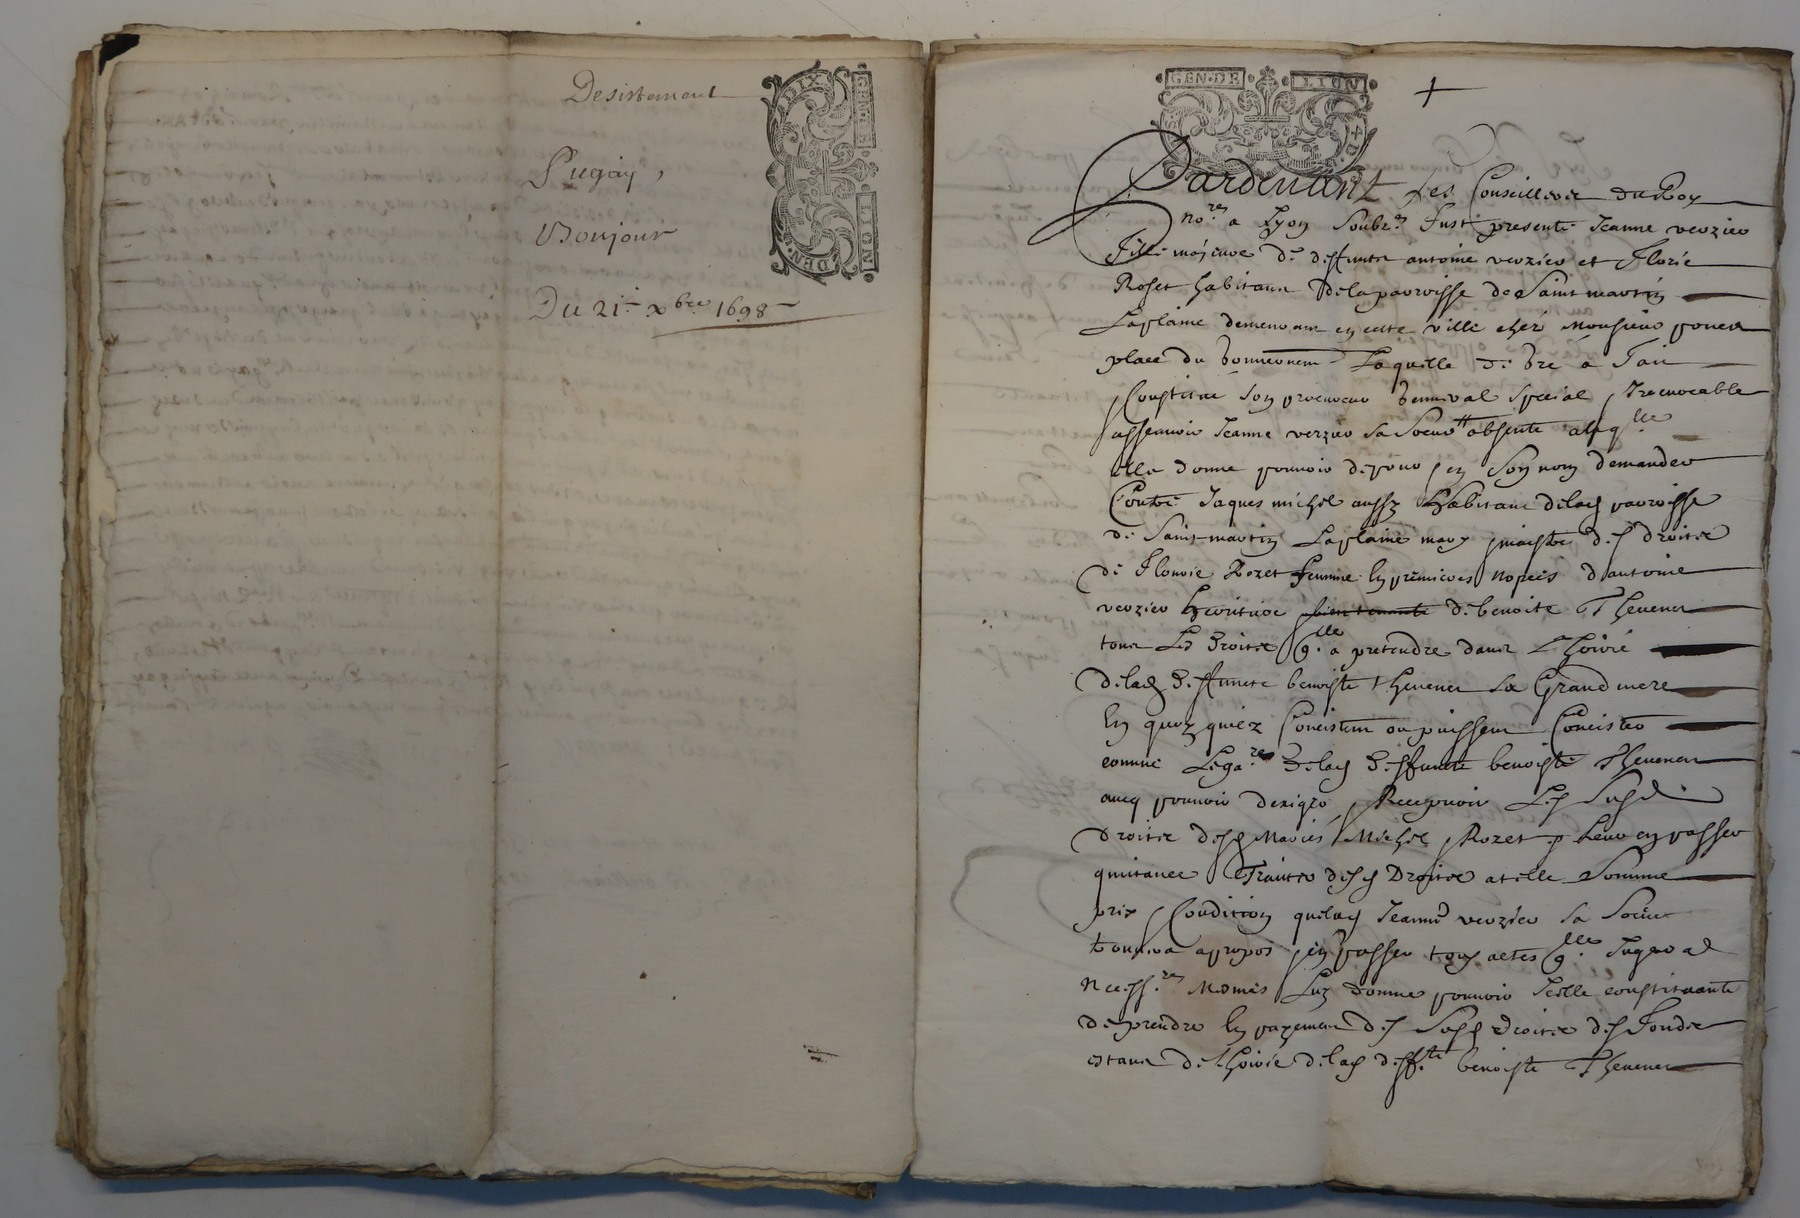 Desistement
Pugay,
Bonjour
Du 21e xbre 1698
GEN.DE LION
GEN.DE LION
Pardevant Les Conseillers du Roy
nores a Lyon Soubznes fust presente Jeanne verzieu
fille majeure de deffuntz antoine verzieu et Florie
Roset habitans de la parroisse de Saint martin
Laplaine demeurant en cette ville chéz Monsieur
place du Laquelle de gré a fait
Constitué son procureur general special Irrevocable
assavoir Jeanne verzieu sa Soeur absente a laqlle
elle donne pouvoir de pour en Son nom demander
Contre Jaques michel aussy habitant de lad parroisse
de Saint martin Laplaine mary maistre des droits
de Flourie Rozet femme en premieres nopces d'antoine
verzieu heritiere de benoite Thevenet
tous Les droits qlle a pretendre dans L'hoirie
de lad deffuncte benoiste thevenet sa Grand mere
En quoy quiéz Concistent ou puissent Concister
comme de lad deffuncte benoiste Thevenet
avec pouvoir dexiger Recepvoir Les Susd
droits desd Mariés Michel Rozet Leur en passer
quittance Traiter desd Droits a telle Somme
prix Condition que lad Jeanne verzieu sa Soeur
trouvera apropos en passer tous actes qlle Jugera
necessres Mesmes Luy donne pouvoir icelle constituante
de prendre En payement des Susd droits des fonds
estans de l'hoirie de lad defftte benoiste Thevenet